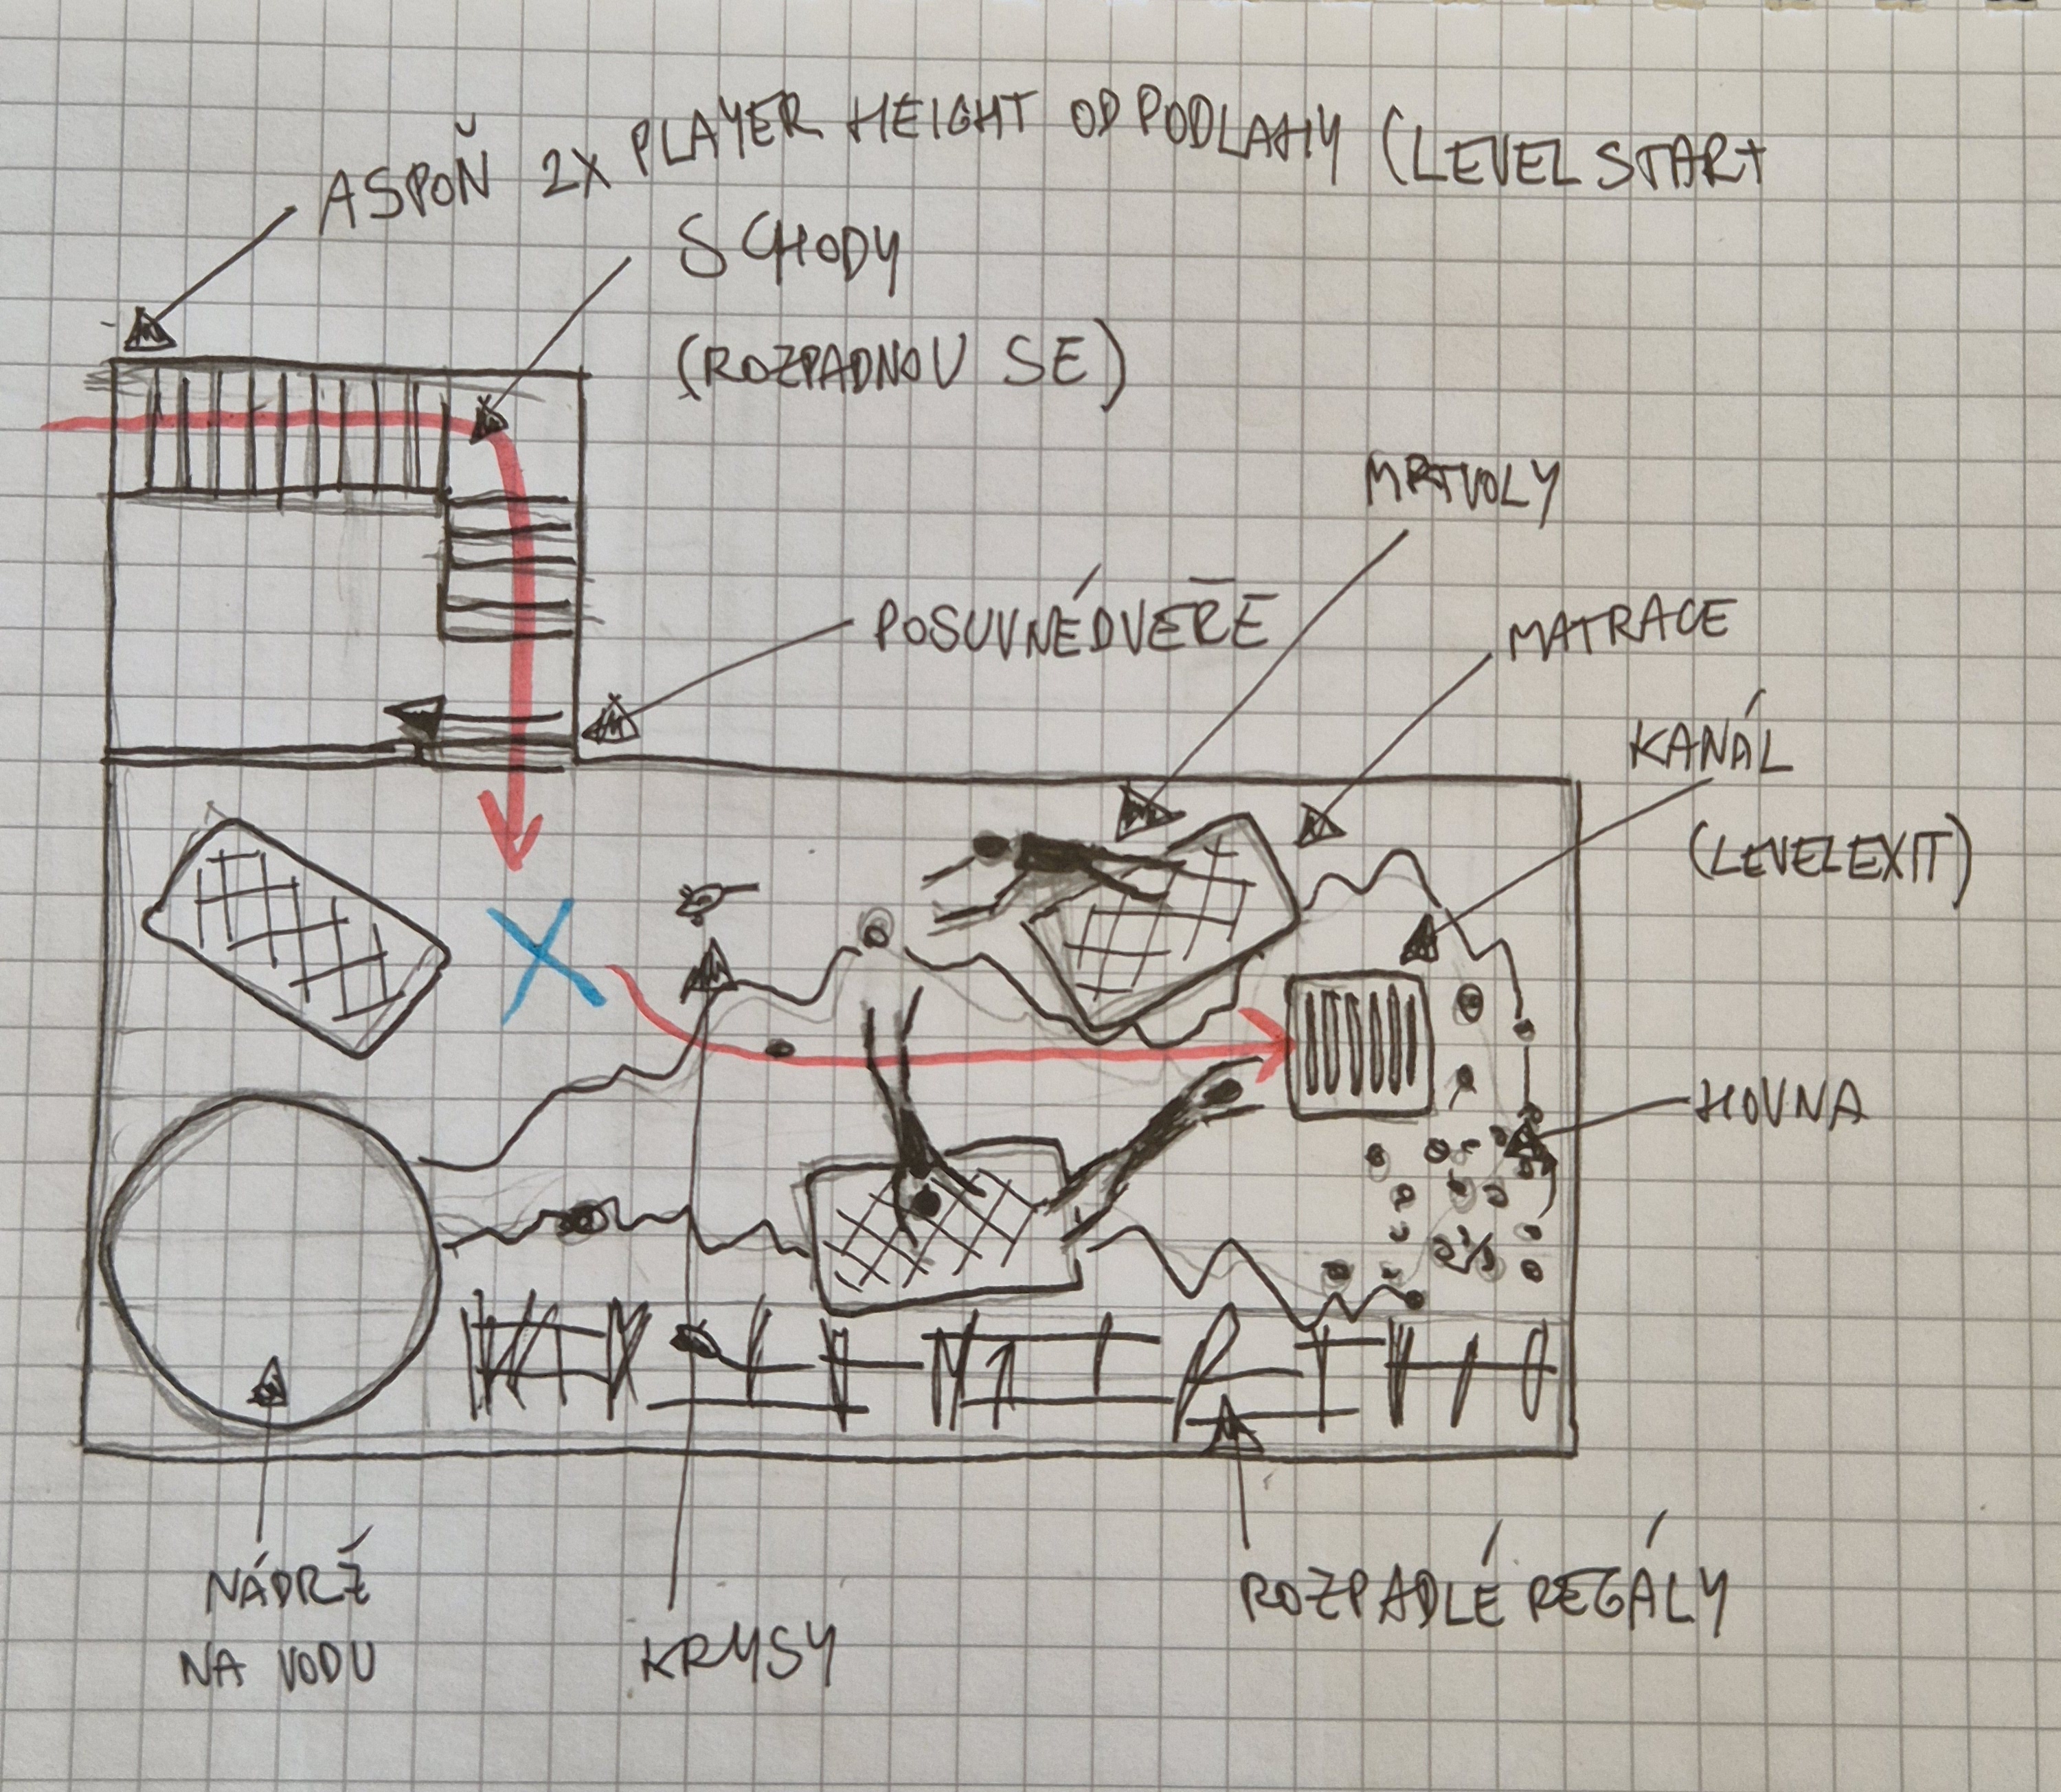 ASPOŇ 2X PLAYER HEIGHT OD PODLAHY (LEVEL START
SCHODY
(ROZPADNOU SE)
MRTVOLY
POSUVNÉ DVEŘE
MATRACE
KANÁL
(LEVEL EXIT)
HOVNA
NÁDRŽ
NA VODU
KRYSY
ROZPADLÉ REGÁLY